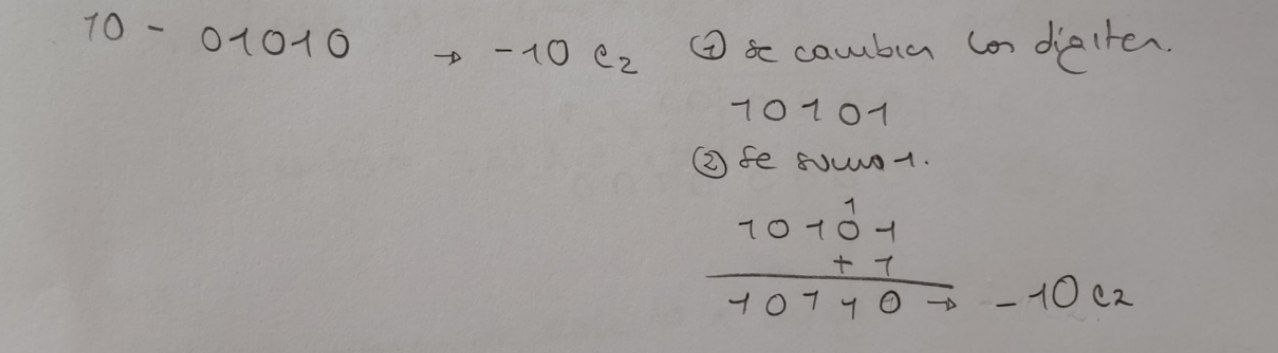 10 - 01010 → -10 C2 ① Se cambian los digitos.
10101
② Se suma 1.
1
10101
+ 1
10110 → -10 C2